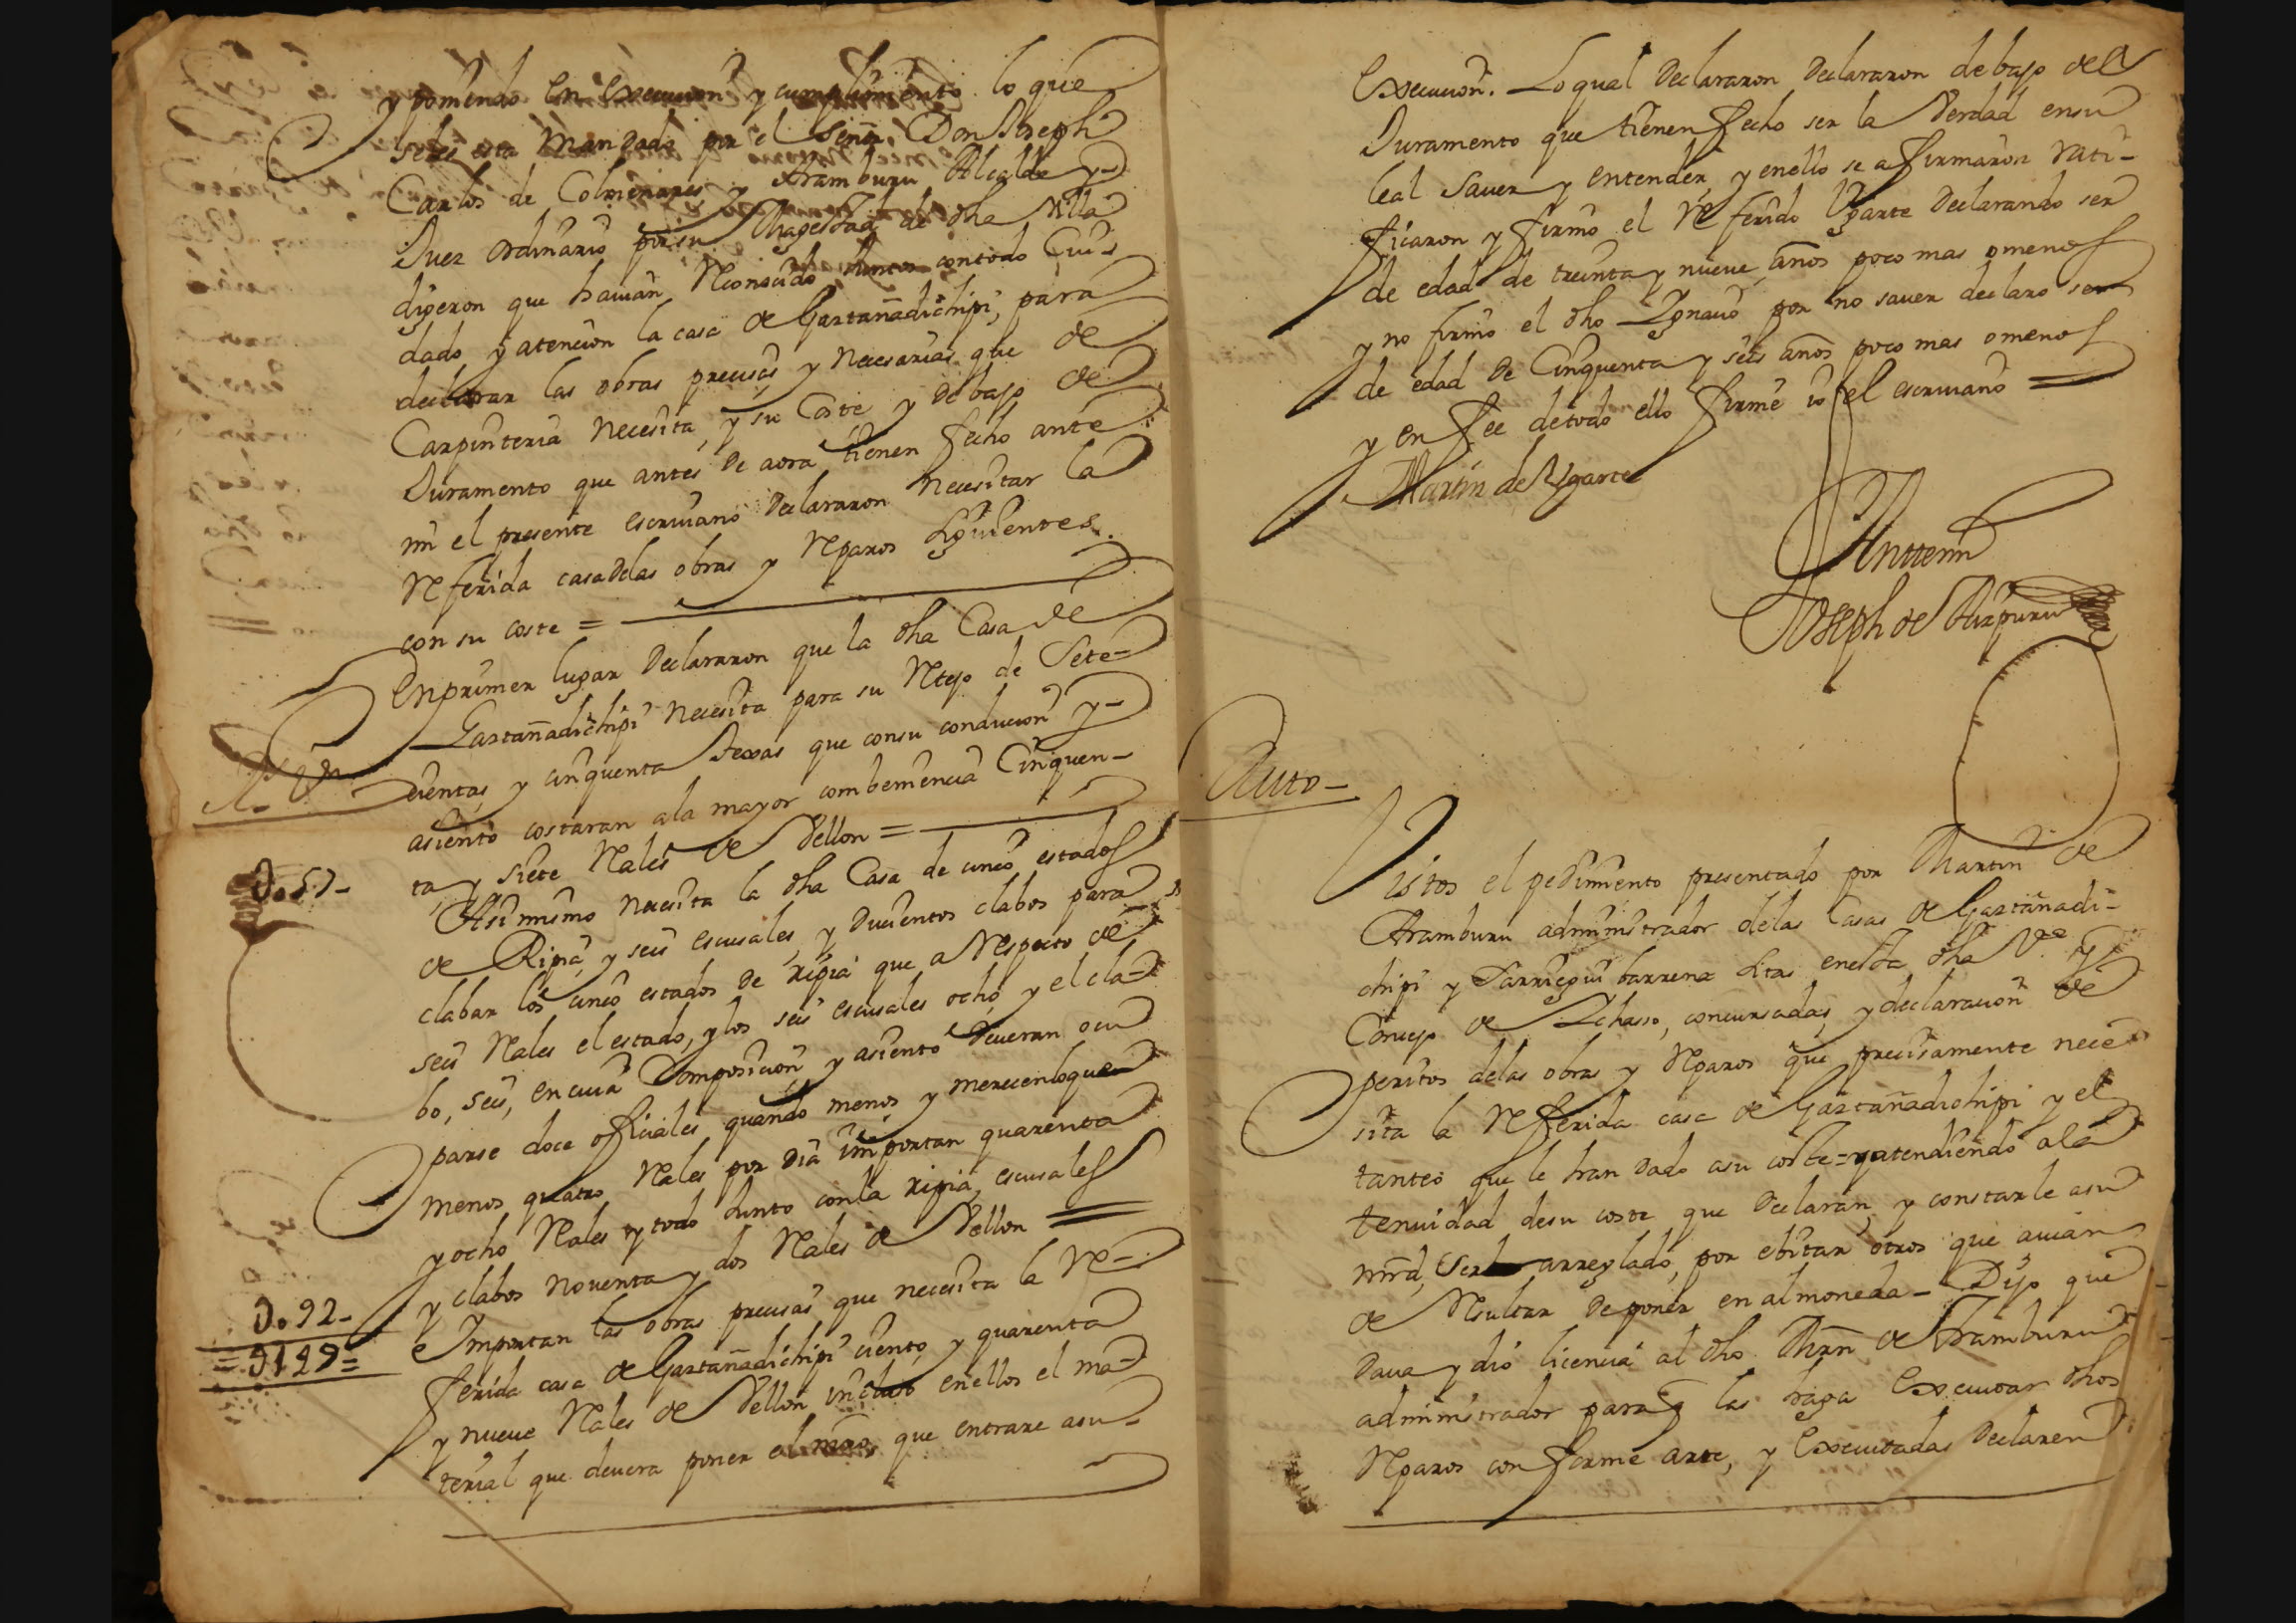 y poniendo en execucion y cumplimiento lo que
seles esta mandado por el señor Don Joseph
Carlos de Colmenares y Aramburu Alcalde y
Juez ordinario por su Magestad de dha Villa
digeron que havian Reconocido Juntos contodo Cui-
dado y atencion la casa de Gaztañadichipi, para
declarar las obras precisas y necesarias que de
Carpinteria Necesita, y su Coste y debajo de
Juramento que antes de aora tienen fecho ante
mi el presente escrivano Declararon Necesitar la
Referida casa delas obras y Reparos siguientes
con su coste =
En primer lugar Declararon que la dha Casa de
Gaztañadichipi necesita para su Retejo de Sete-
cientas y cinquenta texas que consu conducion y
asiento costaran ala mayor combeniencia Cinquen-
ta y siete Rales de Vellon =
Do57-
Asimismo necesita la dha Casa de cinco estados
de Ripia y seis escusales, y Ducientos clabos para
clabar los cinco estados de ripia que a Respecto de
seis Rales el estado, y los seis escusales ocho, y el cla-
bo, seis, en cuia Composicion y asiento deveran ocu
parse doce oficiales quando menos y merecenloquen
menos quatro Rales por dia importan quarenta
y ocho Rales y todo Junto conla ripia, escusales
y clabos noventa y dos Rales de Vellon =
Do92-
Importan las obras precisas que necesita la Re-
=D149=
ferida casa de Gaztañadichipi ciento y quarenta
y nueve Rales de Vellon incluso enellos el ma-
terial que devera poner el mro que entrare asu
execucion. Loqual Declararon Declararon debajo del
Juramento que tienen fecho ser la Verdad ensu
leal saver y entender, y enello se afirmaron rati-
ficaron y firmo el Referido Ugarte Declarando ser
de edad de treinta y nueve años poco mas omenos
y no firmo el dho Ignacio por no saver declaro ser
de edad de Cinquenta y seis años poco mas omenos
y en fee detodo ello firme io el escrivano =
Martin de Ugarte
Antte mi
Joseph de Aizpuru
Auto-
Vistos el pedimiento presentado por Martin de
Aramburu administrador delas Casas de Gaztañadi-
chipi y Jarriegui barrena sitas en dha Va y
Concejo de Ichaso, concursadas, y declaracion de
peritos delas obras y Reparos que precisamente nece
sita la Referida casa de Gaztañadichipi y el
tanteo que le han dado asu coste = y atendiendo ala
tenuidad desu coste que Declaran, y constarle asu
mrd, ser arreglado, por ebitar otros que avian
de Resultar De poner en almoneda - Dijo que
dava y dio licencia al dho Mrn de Aramburu
administrador para q las haga Executar dhos
Reparos conforme arte, y Executadas Declaren